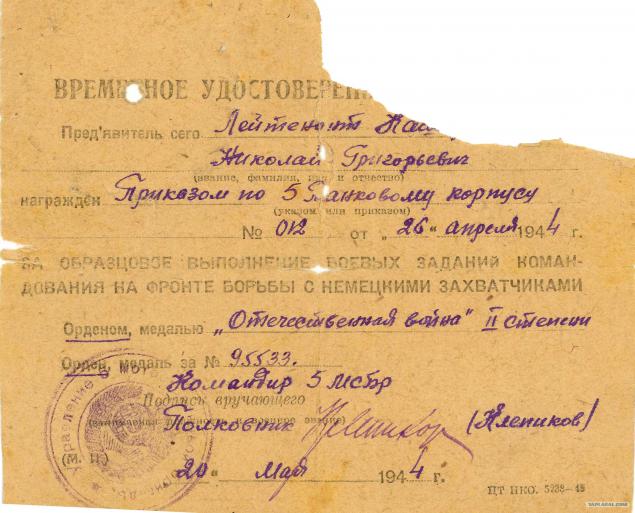 ВРЕМЕННОЕ УДОСТОВЕРЕН
Пред'явитель сего Лейтенант
Николай Григорьевич
(звание, фамилия, имя и отчество)
награждён Приказом по 5 Танковому корпусу
(указом или приказом)
№ 012 от „26" апреля 1944 г.
ЗА ОБРАЗЦОВОЕ ВЫПОЛНЕНИЕ БОЕВЫХ ЗАДАНИЙ КОМАН-
ДОВАНИЯ НА ФРОНТЕ БОРЬБЫ С НЕМЕЦКИМИ ЗАХВАТЧИКАМИ
Орденом, медалью „Отечественная война" II степени
Орден, медаль за № 95533.
Командир 5 мсбр
Подпись вручающего
Полковник (Клепиков)
(М. П.)
20 Мая 1944 г.
ЦТ НКО. 5238—43
Управление